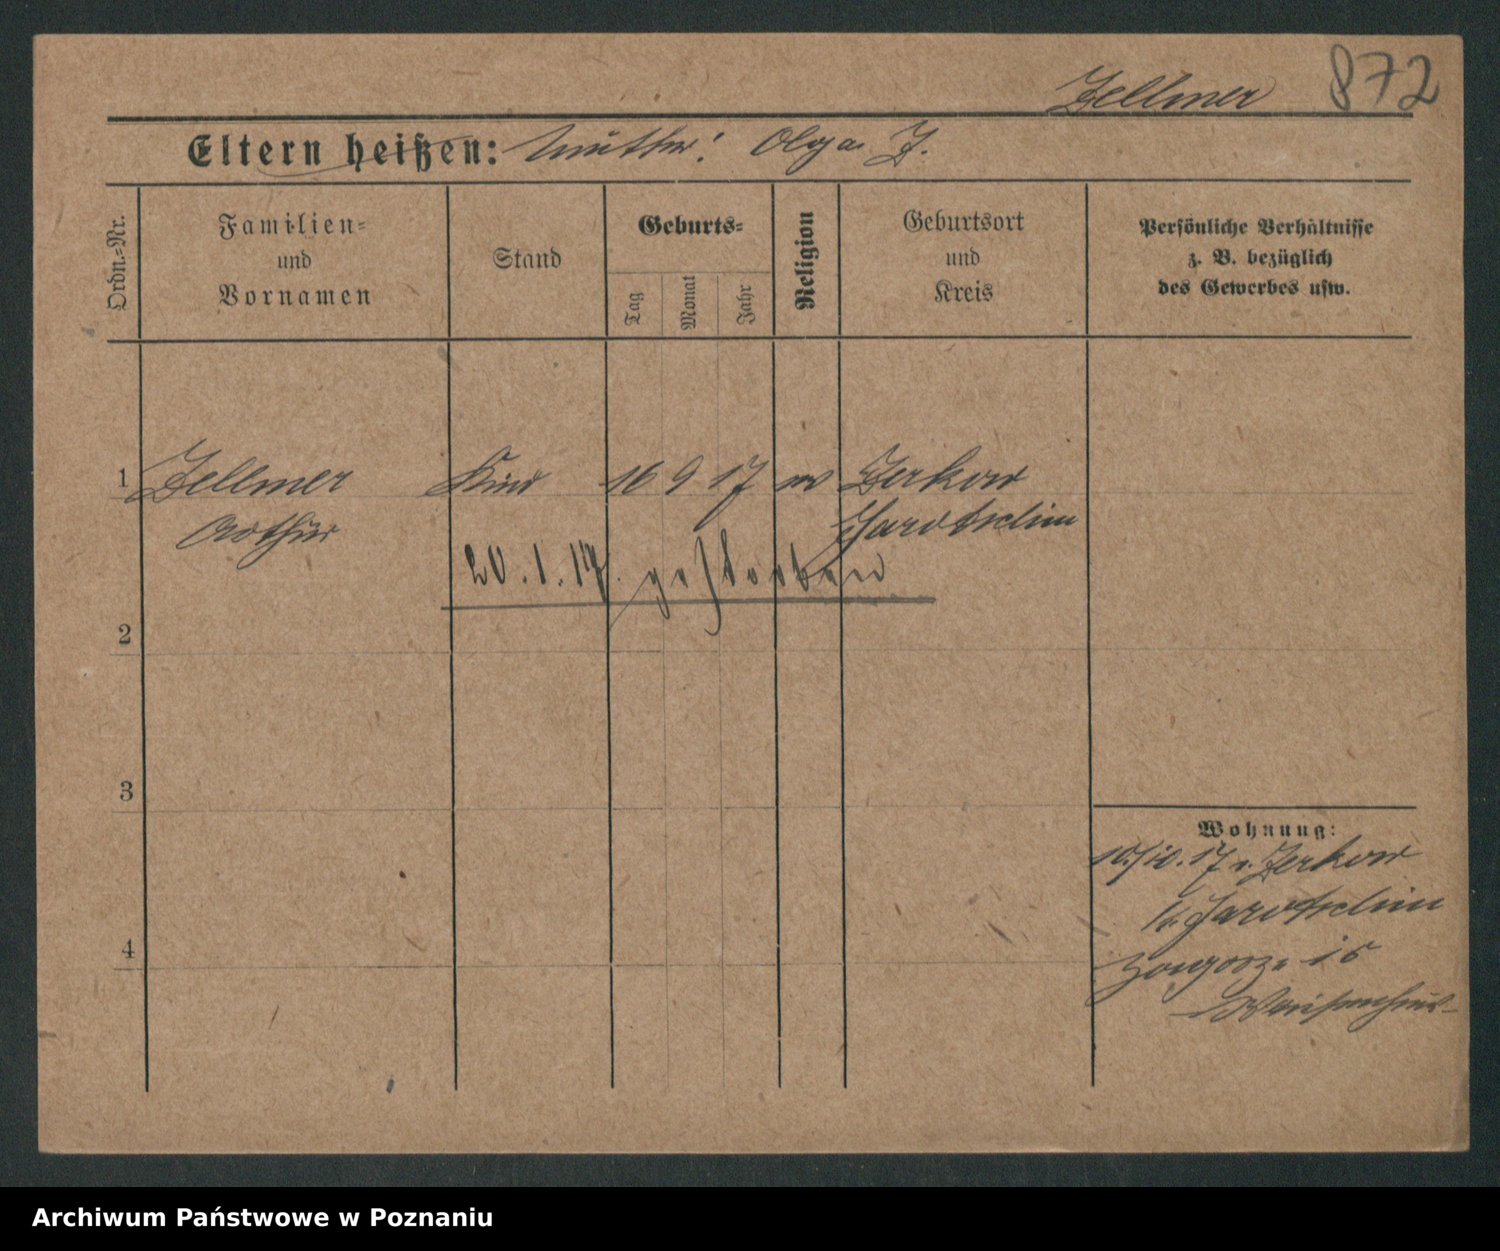 Zellmer 872
Eltern heißen: Mutter: Olga Z.
Ordn.=Nr.
Familien=
und
Vornamen
Stand
Geburts=
Tag
Monat
Jahr
Religion
Geburtsort
und
Kreis
Persönliche Verhältnisse
z. B. bezüglich
des Gewerbes usw.
1 Zellmer Kind 16 9 17 Zerkow
Arthur Jarotschin
20.1.17. gestorben
2
3
4
Wohnung:
10./10. 17 v. Zerkow
Kr. Jarotschin
Zagorze 15
Waisenhaus
Archiwum Państwowe w Poznaniu